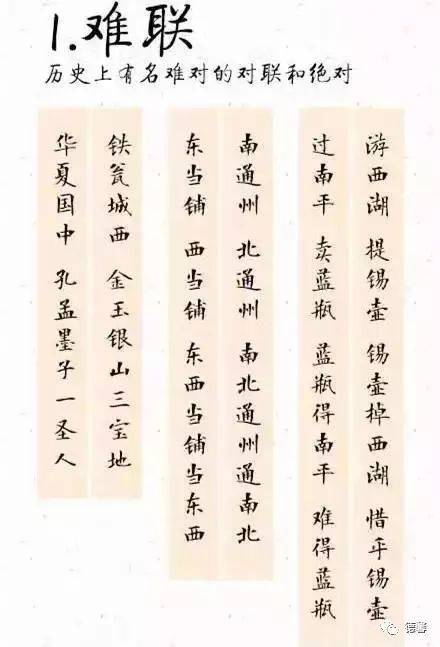 1.难联
历史上有名难对的对联和绝对
游西湖 提锡壶 锡壶掉西湖 惜乎锡壶
过南平 卖蓝瓶 蓝瓶得南平 难得蓝瓶
南通州 北通州 南北通州通南北
东当铺 西当铺 东西当铺当东西
铁瓮城西 金玉银山三宝地
华夏国中 孔孟墨子一圣人
德馨